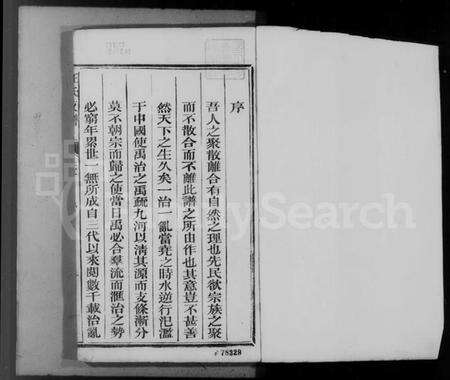 序
吾人之聚散離合有自然之理也先民欲宗族之聚
而不散合而不離此譜之所由作也其意豈不甚善
然天下之生久矣一治一亂當堯之時水逆行氾濫
于中國使禹治之禹疏九河以清其源而支條漸分
莫不朝宗而歸之使當日禹必合羣流而滙治之勢
必窮年累世一無所成自一代以來閱數千載治亂
Search
78328